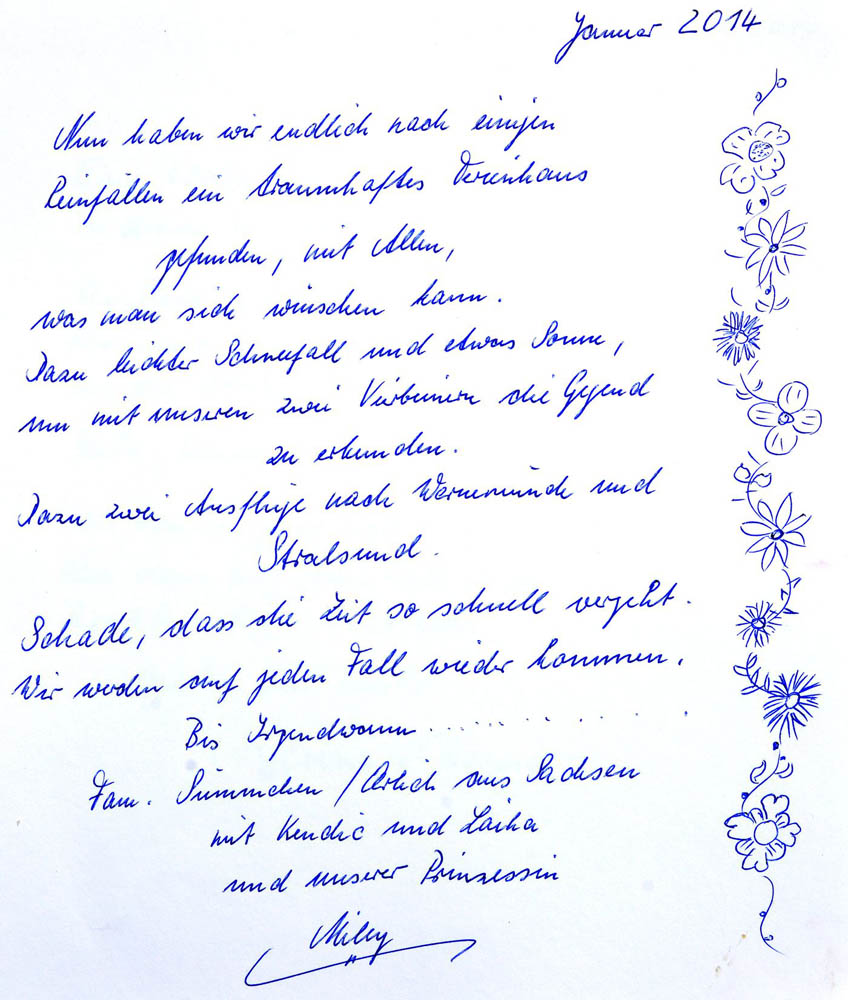 Januar 2014
Nun haben wir endlich nach einigen
Reinfällen ein traumhaftes Ferienhaus
gefunden, mit Allen,
was man sich wünschen kann.
Dazu leichter Schneefall und etwas Sonne,
um mit unseren zwei Vierbeinern die Gegend
zu erkunden.
Dazu zwei Ausflüge nach Warnemünde und
Stralsund.
Schade, dass die Zeit so schnell vergeht.
Wir werden auf jeden Fall wieder kommen.
Bis Irgendwann ............
Fam. Sümmchen / aus Sachsen
mit und Laika
und unserer Prinzessin
Miley